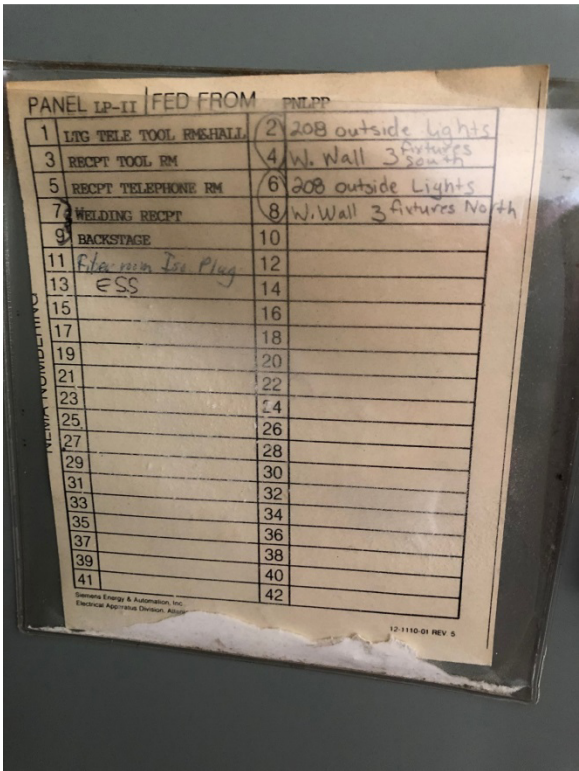 PANEL LP-II FED FROM PNLPP
1 LTG TELE TOOL RM&HALL 2 208 outside Lights
3 RECPT TOOL RM 4 W. Wall 3 fixtures south
5 RECPT TELEPHONE RM 6 208 outside Lights
7 WELDING RECPT 8 W. Wall 3 fixtures North
9 BACKSTAGE 10
11 Fiber room Iso. Plug 12
13 ESS 14
15 16
17 18
19 20
21 22
23 24
25 26
27 28
29 30
31 32
33 34
35 36
37 38
39 40
41 42
NEMA NUMBERING
Siemens Energy & Automation, Inc.
Electrical Apparatus Division,
12-1110-01 REV 5